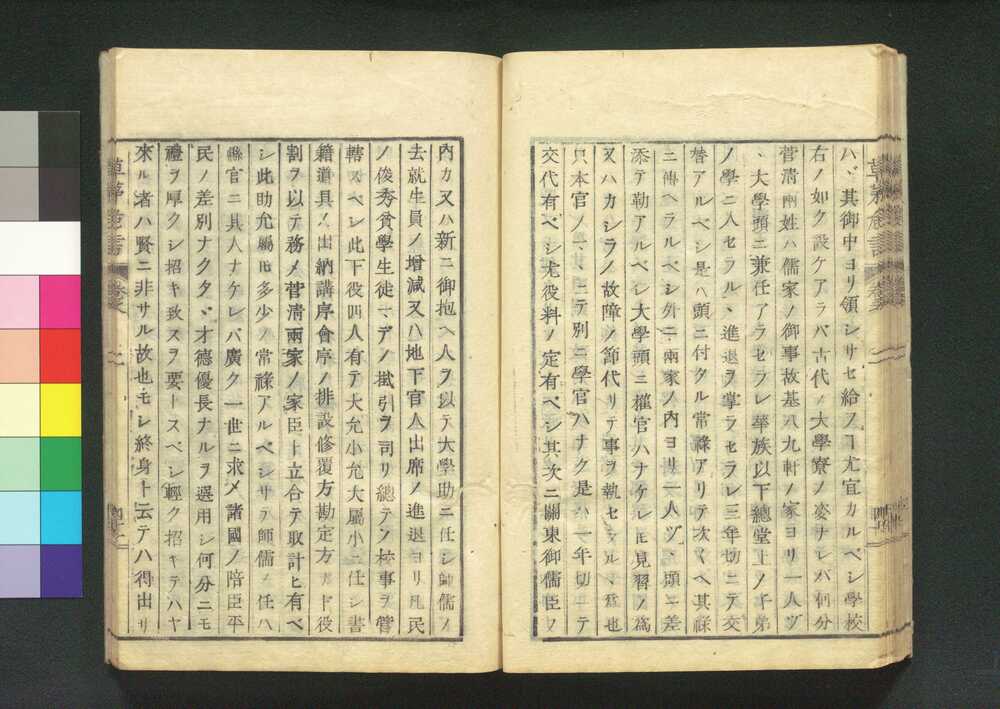 ハヾ其御中ヨリ領シサセ給フヿ尤宜カルベシ學校
右ノ如ク設ケアラバ古代ノ大學寮ノ姿ナレバ何分
菅淸兩姓ハ儒家ノ御事故基八九軒ノ家ヨリ一人ヅ
ヽ大學頭ニ兼任アラセラレ華族以下總堂上ノ子弟
ノ學ニ入セラルヽ進退ヲ掌ラセラレ三年切ニテ交
替アルベシ是ハ頭ニ付タル常祿アリテ次々ヘ其祿
ニ傳ヘラルベシ外ニ兩家ノ內ヨリ一人ヅヽ頭ニ差
添テ勤アルベシ大學頭ニ權官ハナケレ𪜈見習ノ爲
又ハカシラノ故障ノ節代リテ事ヲ執セラルヽ爲也
只本官ノマヽニテ別ニ學官ハナク是ハ一年切ニテ
交代有ベシ尤役料ノ定有ベシ其次ニ關東御儒臣ノ
內カ又ハ新ニ御抱ヘ人ヲ以テ大學助ニ任シ師儒ノ
去就生員ノ增減又ハ地下官人出席ノ進退ヨリ凡民
ノ俊秀貧學生徒マデノ掛引ヲ司リ總テノ校事ヲ管
轄スベシ此下役四人有テ大允小允大屬小ニ任シ書
籍道具ノ出納講序會序ノ排設修覆方勘定方カド役
割ヲ以テ務メ菅淸兩家ノ家臣ト立合テ取計ヒ有ベ
シ此助允屬𪜈多少ノ常祿アルベシサテ師儒ノ任ハ
縣官ニ其人ナケレバ廣ク一世ニ求メ諸國ノ陪臣平
民ノ差別ナクタヾ才德優長ナルヲ選用シ何分ニモ
禮ヲ厚クシ招キ致スヲ要トスベシ輕ク招キテハヤ
來ル者ハ賢ニ非サル故也モシ終身ト云テハ得出サ